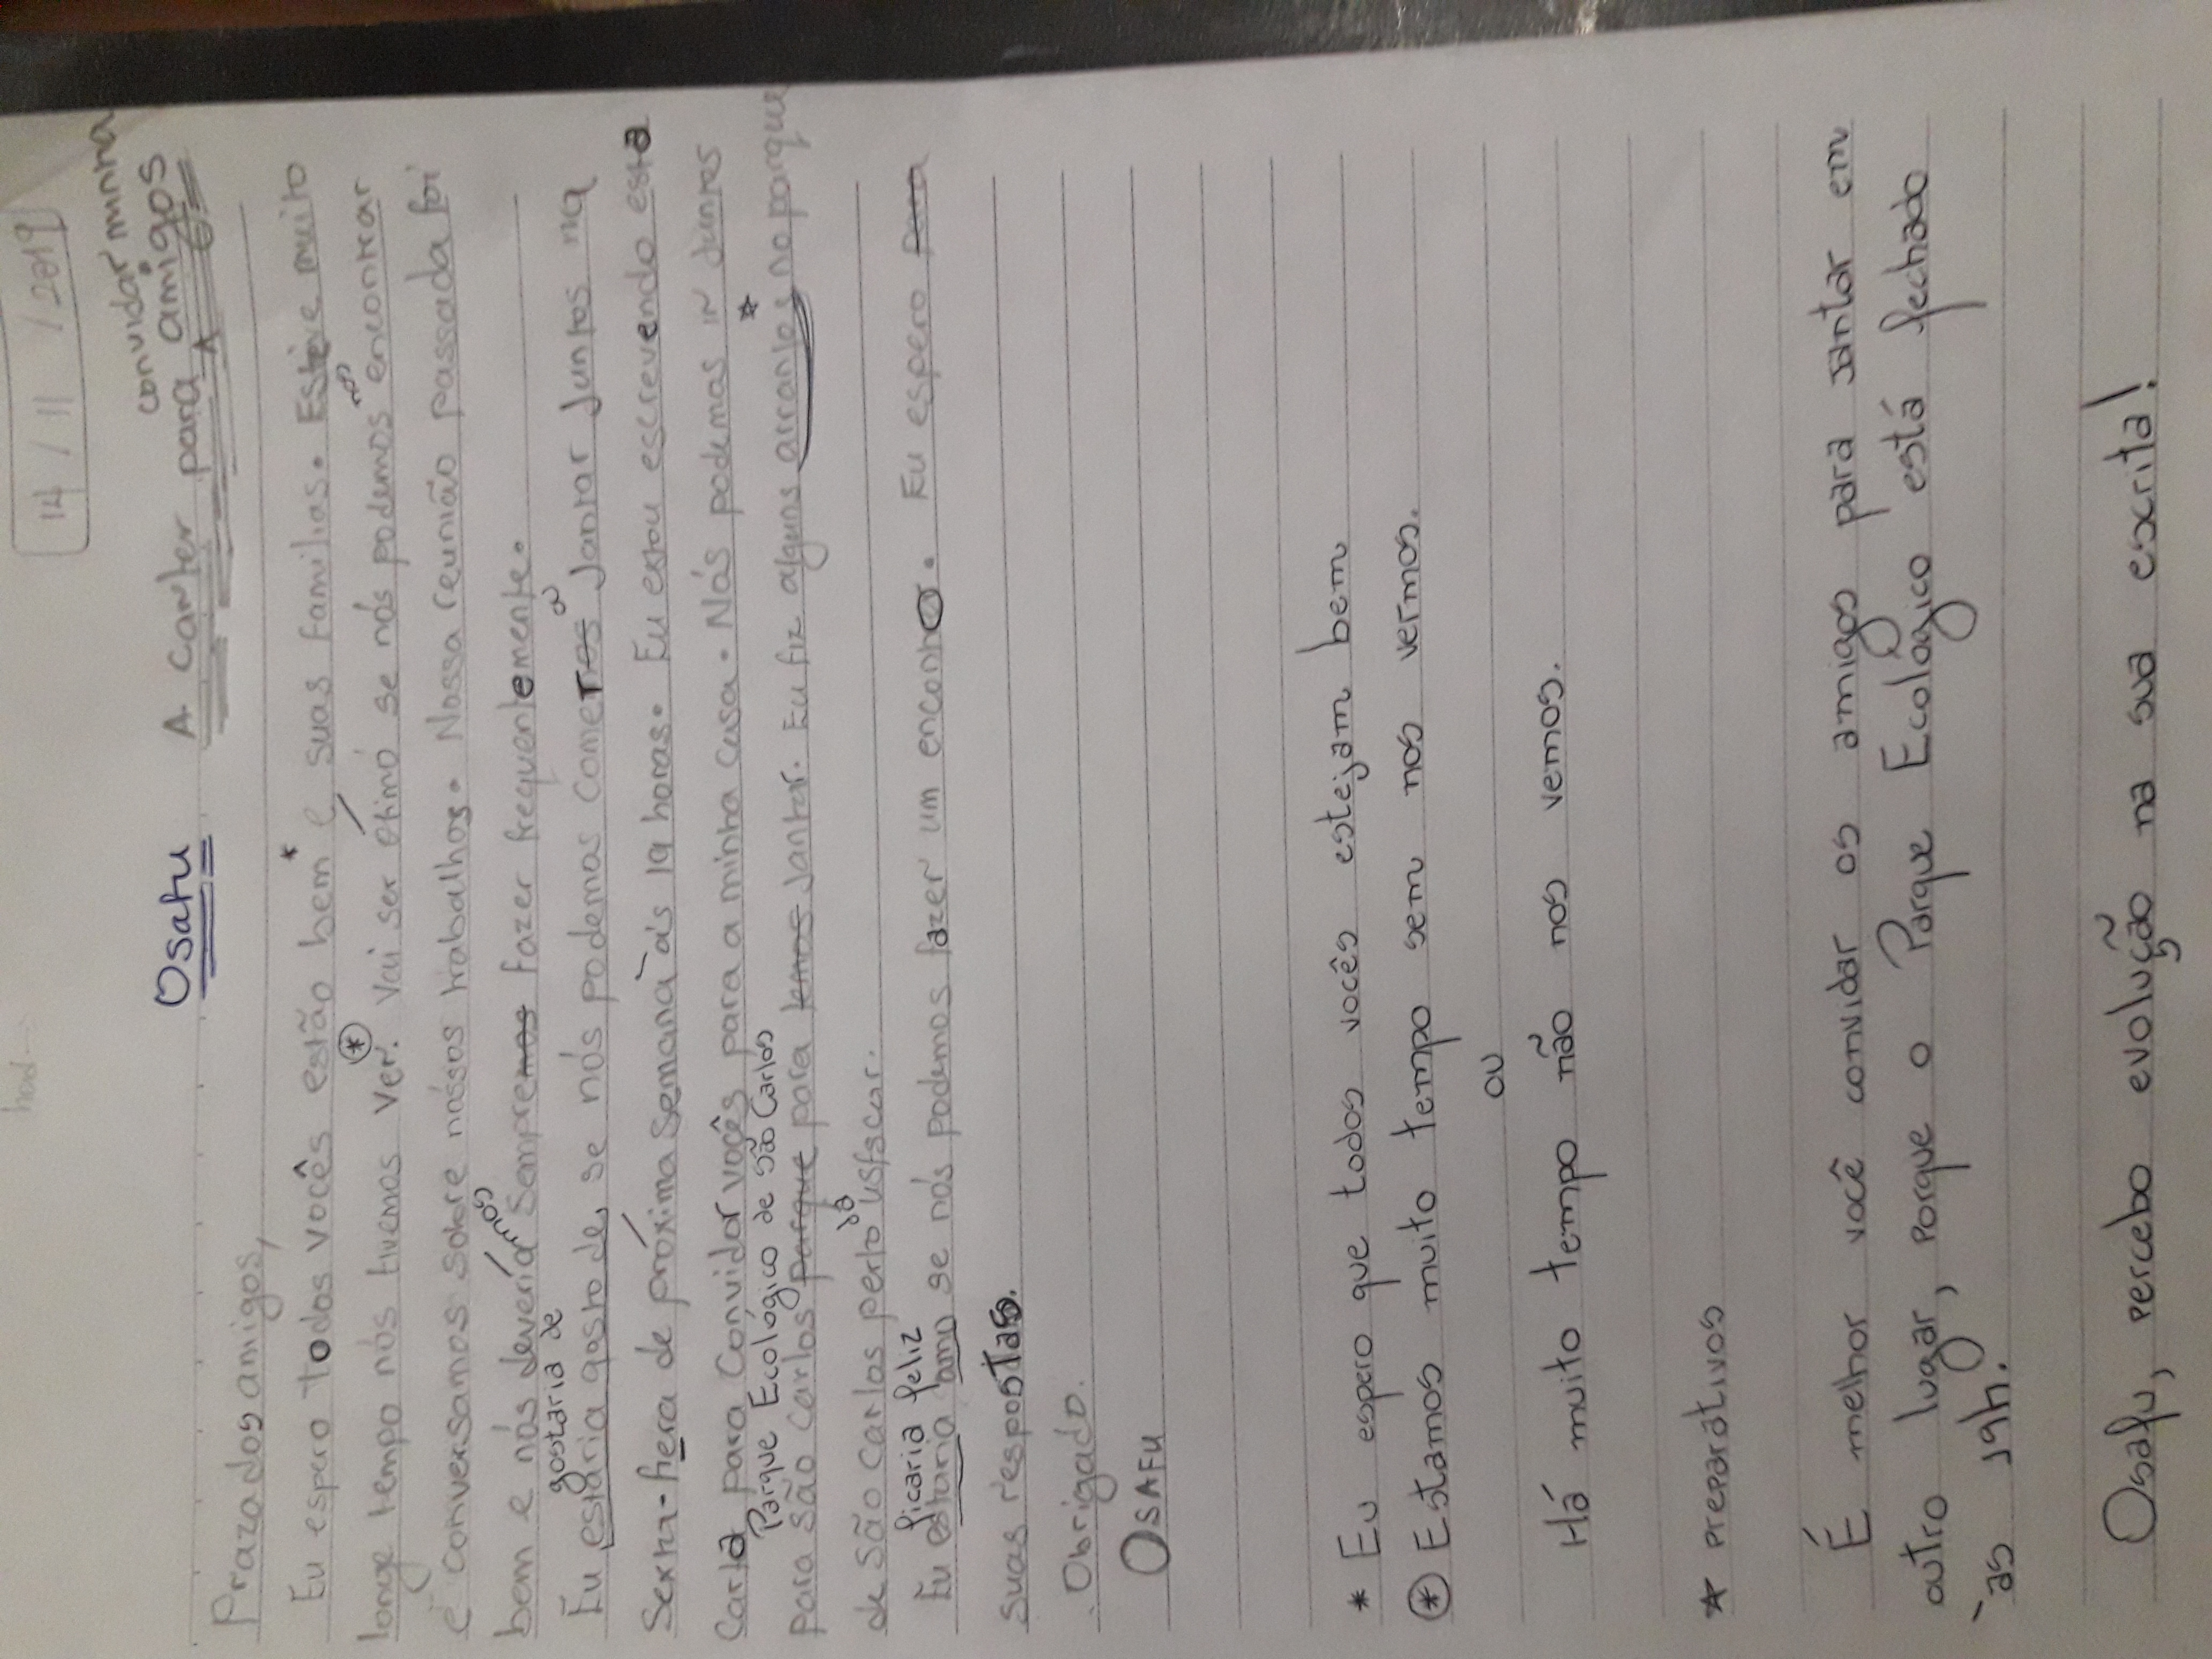 14 / 11 / 2019
convidar minha
Osafu A carter para amigos
Prazados amigos,
Eu espero todos vocês estão bem* e suas familias. Esteve muito
longe tempo nós tivemos ver. ⊛ Vai ser étimo se nós podemos nos encontrar
e conversamos sobre nossos trabalhos. Nossa reunião passada foi
bem e nós deveríamos sempremos fazer frequentemente.
gostaria de
Eu estaria gosto de, se nós podemos comer o Jantar Juntos na
Sexta-fiera de próxima semana às 19 horas. Eu estou escrevendo esta
Carta para Convidar vocês para a minha casa. Nós podemos ir Juntos
Parque Ecológico de São Carlos
para são carlos parque para temos Jantar. Eu fiz alguns arranjos* no parque
de São Carlos perto da usfscar.
ficaria feliz
Eu estaria amo se nós podemos fazer um encontro. Eu espero para
suas respostas.
Obrigado.
OSAFU
* Eu espero que todos vocês estejam bem
⊛ Estamos muito tempo sem nos vermos.
ou
Há muito tempo não nos vemos.
* preparativos
É melhor você convidar os amigos para jantar em
outro lugar, porque o Parque Ecológico está fechado
às 19h.
Osafu, percebo evolução na sua escrita!